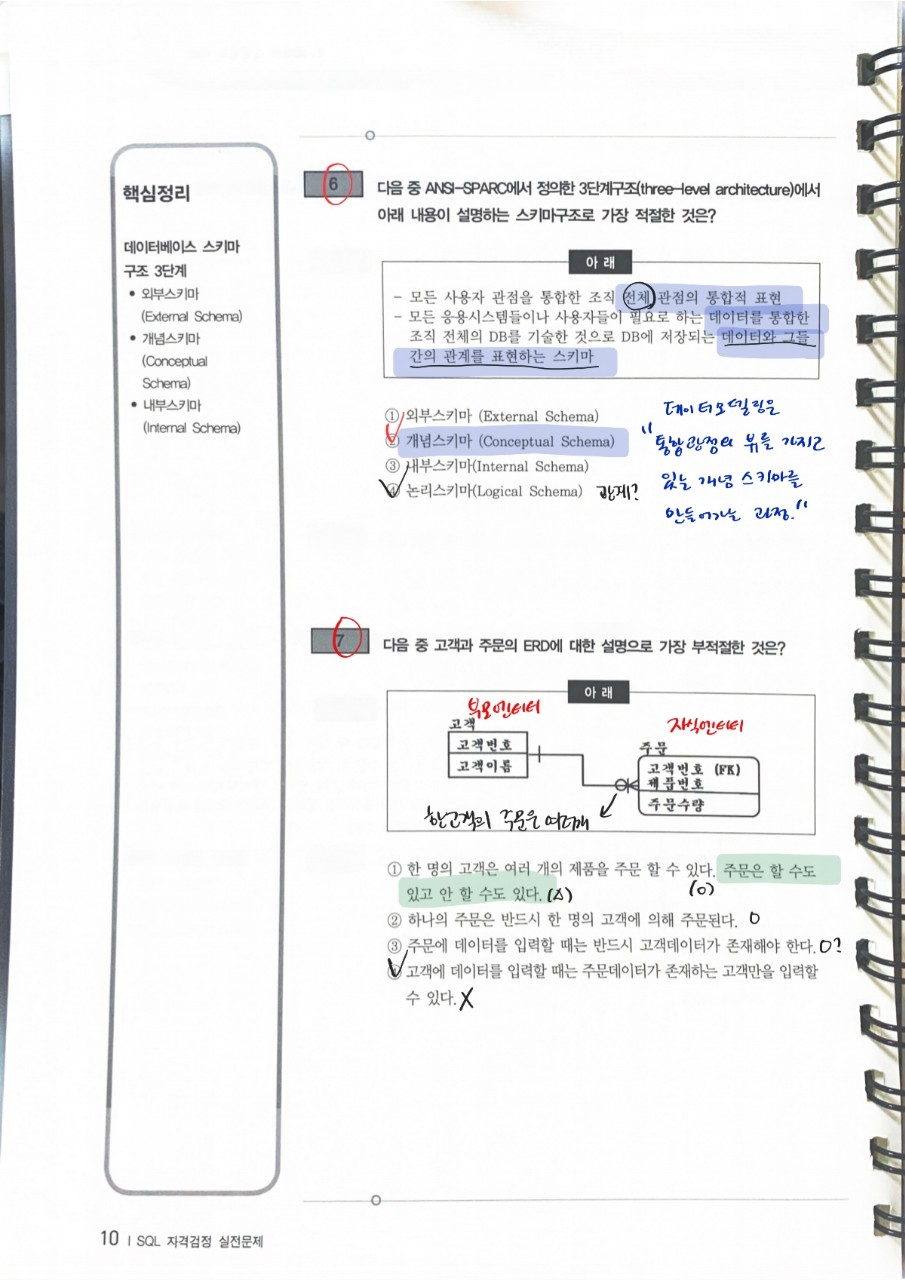 핵심정리
데이터베이스 스키마
구조 3단계
• 외부스키마
(External Schema)
• 개념스키마
(Conceptual
Schema)
• 내부스키마
(Internal Schema)
6
다음 중 ANSI-SPARC에서 정의한 3단계구조(three-level architecture)에서
아래 내용이 설명하는 스키마구조로 가장 적절한 것은?
아 래
- 모든 사용자 관점을 통합한 조직 전체 관점의 통합적 표현
- 모든 응용시스템들이나 사용자들이 필요로 하는 데이터를 통합한
조직 전체의 DB를 기술한 것으로 DB에 저장되는 데이터와 그들
간의 관계를 표현하는 스키마
① 외부스키마 (External Schema)
② 개념스키마 (Conceptual Schema)
③ 내부스키마(Internal Schema)
④ 논리스키마(Logical Schema) 관계?
데이터모델링은
"통합관점의 뷰를 가지고
있는 개념 스키마를
만들어가는 과정."
7
다음 중 고객과 주문의 ERD에 대한 설명으로 가장 부적절한 것은?
아 래
부모엔터티
고객
고객번호
고객이름
자식엔터티
주문
고객번호 (FK)
제품번호
주문수량
한고객의 주문은 여러개
① 한 명의 고객은 여러 개의 제품을 주문 할 수 있다. 주문은 할 수도
있고 안 할 수도 있다. (△) (O)
② 하나의 주문은 반드시 한 명의 고객에 의해 주문된다. O
③ 주문에 데이터를 입력할 때는 반드시 고객데이터가 존재해야 한다. O?
④ 고객에 데이터를 입력할 때는 주문데이터가 존재하는 고객만을 입력할
수 있다. X
10 | SQL 자격검정 실전문제